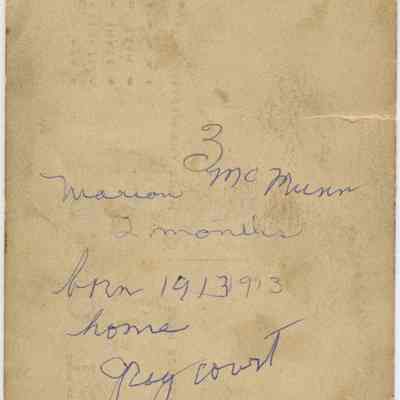 3
Marion McMunn
2 months
born 1913 1913
home
Gray court